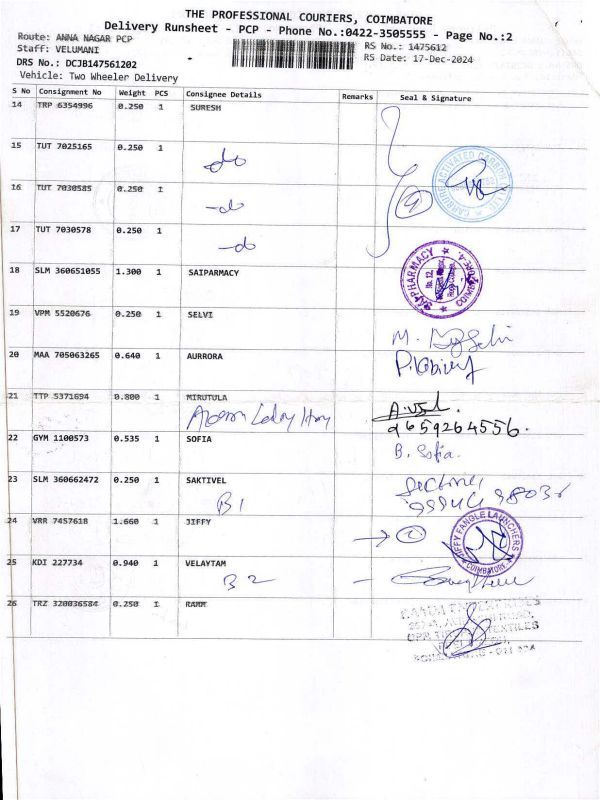 THE PROFESSIONAL COURIERS, COIMBATORE
Delivery Runsheet - PCP - Phone No.:0422-3505555 - Page No.:2
Route: ANNA NAGAR PCP
Staff: VELUMANI
DRS No.: DCJB147561202
Vehicle: Two Wheeler Delivery
RS No.: 1475612
RS Date: 17-Dec-2024
S No Consignment No Weight PCS Consignee Details Remarks Seal & Signature
14 TRP 6354996 0.250 1 SURESH
15 TUT 7025165 0.250 1
do
16 TUT 7030585 0.250 1
-do
17 TUT 7030578 0.250 1
-do
18 SLM 360651055 1.300 1 SAIPARMACY
19 VPM 5520676 0.250 1 SELVI
20 MAA 705063265 0.640 1 AURRORA
21 TTP 5371694 0.800 1 MIRUTULA
9659264556
22 GYM 1100573 0.535 1 SOFIA
B. Sofia
23 SLM 360662472 0.250 1 SAKTIVEL
B1
24 VRR 7457618 1.660 1 JIFFY
→ 2
JIFFY FANGLE LAUNCHERS
COIMBATORE
25 KDI 227734 0.940 1 VELAYTAM
B 2
26 TRZ 320036584 0.250 1 RAMM